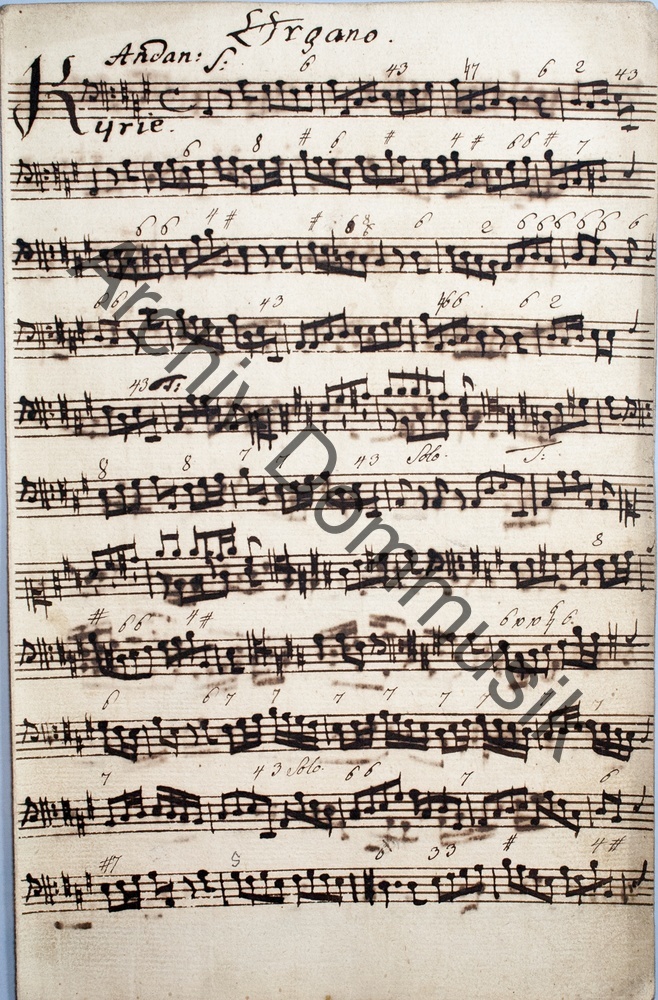 Organo.
Andan: S:
6 43 ♮7 6 2 43
Kyrie.
6 8 # 6 # 4 # 6 6 # 7
6 6 4 # # 6 6 2 6 6 6 6 6 6
6 6 4 3 6 6 6 2
43 T:
8 8 7 7 4 3 Solo. T:
8
# 6 6 4 # 6
6 6 7 7 7 7 7 7 7
7 4 3 Solo. 6 6 7 6
#7 6 3 3 # 4 #
Archiv Dommusik